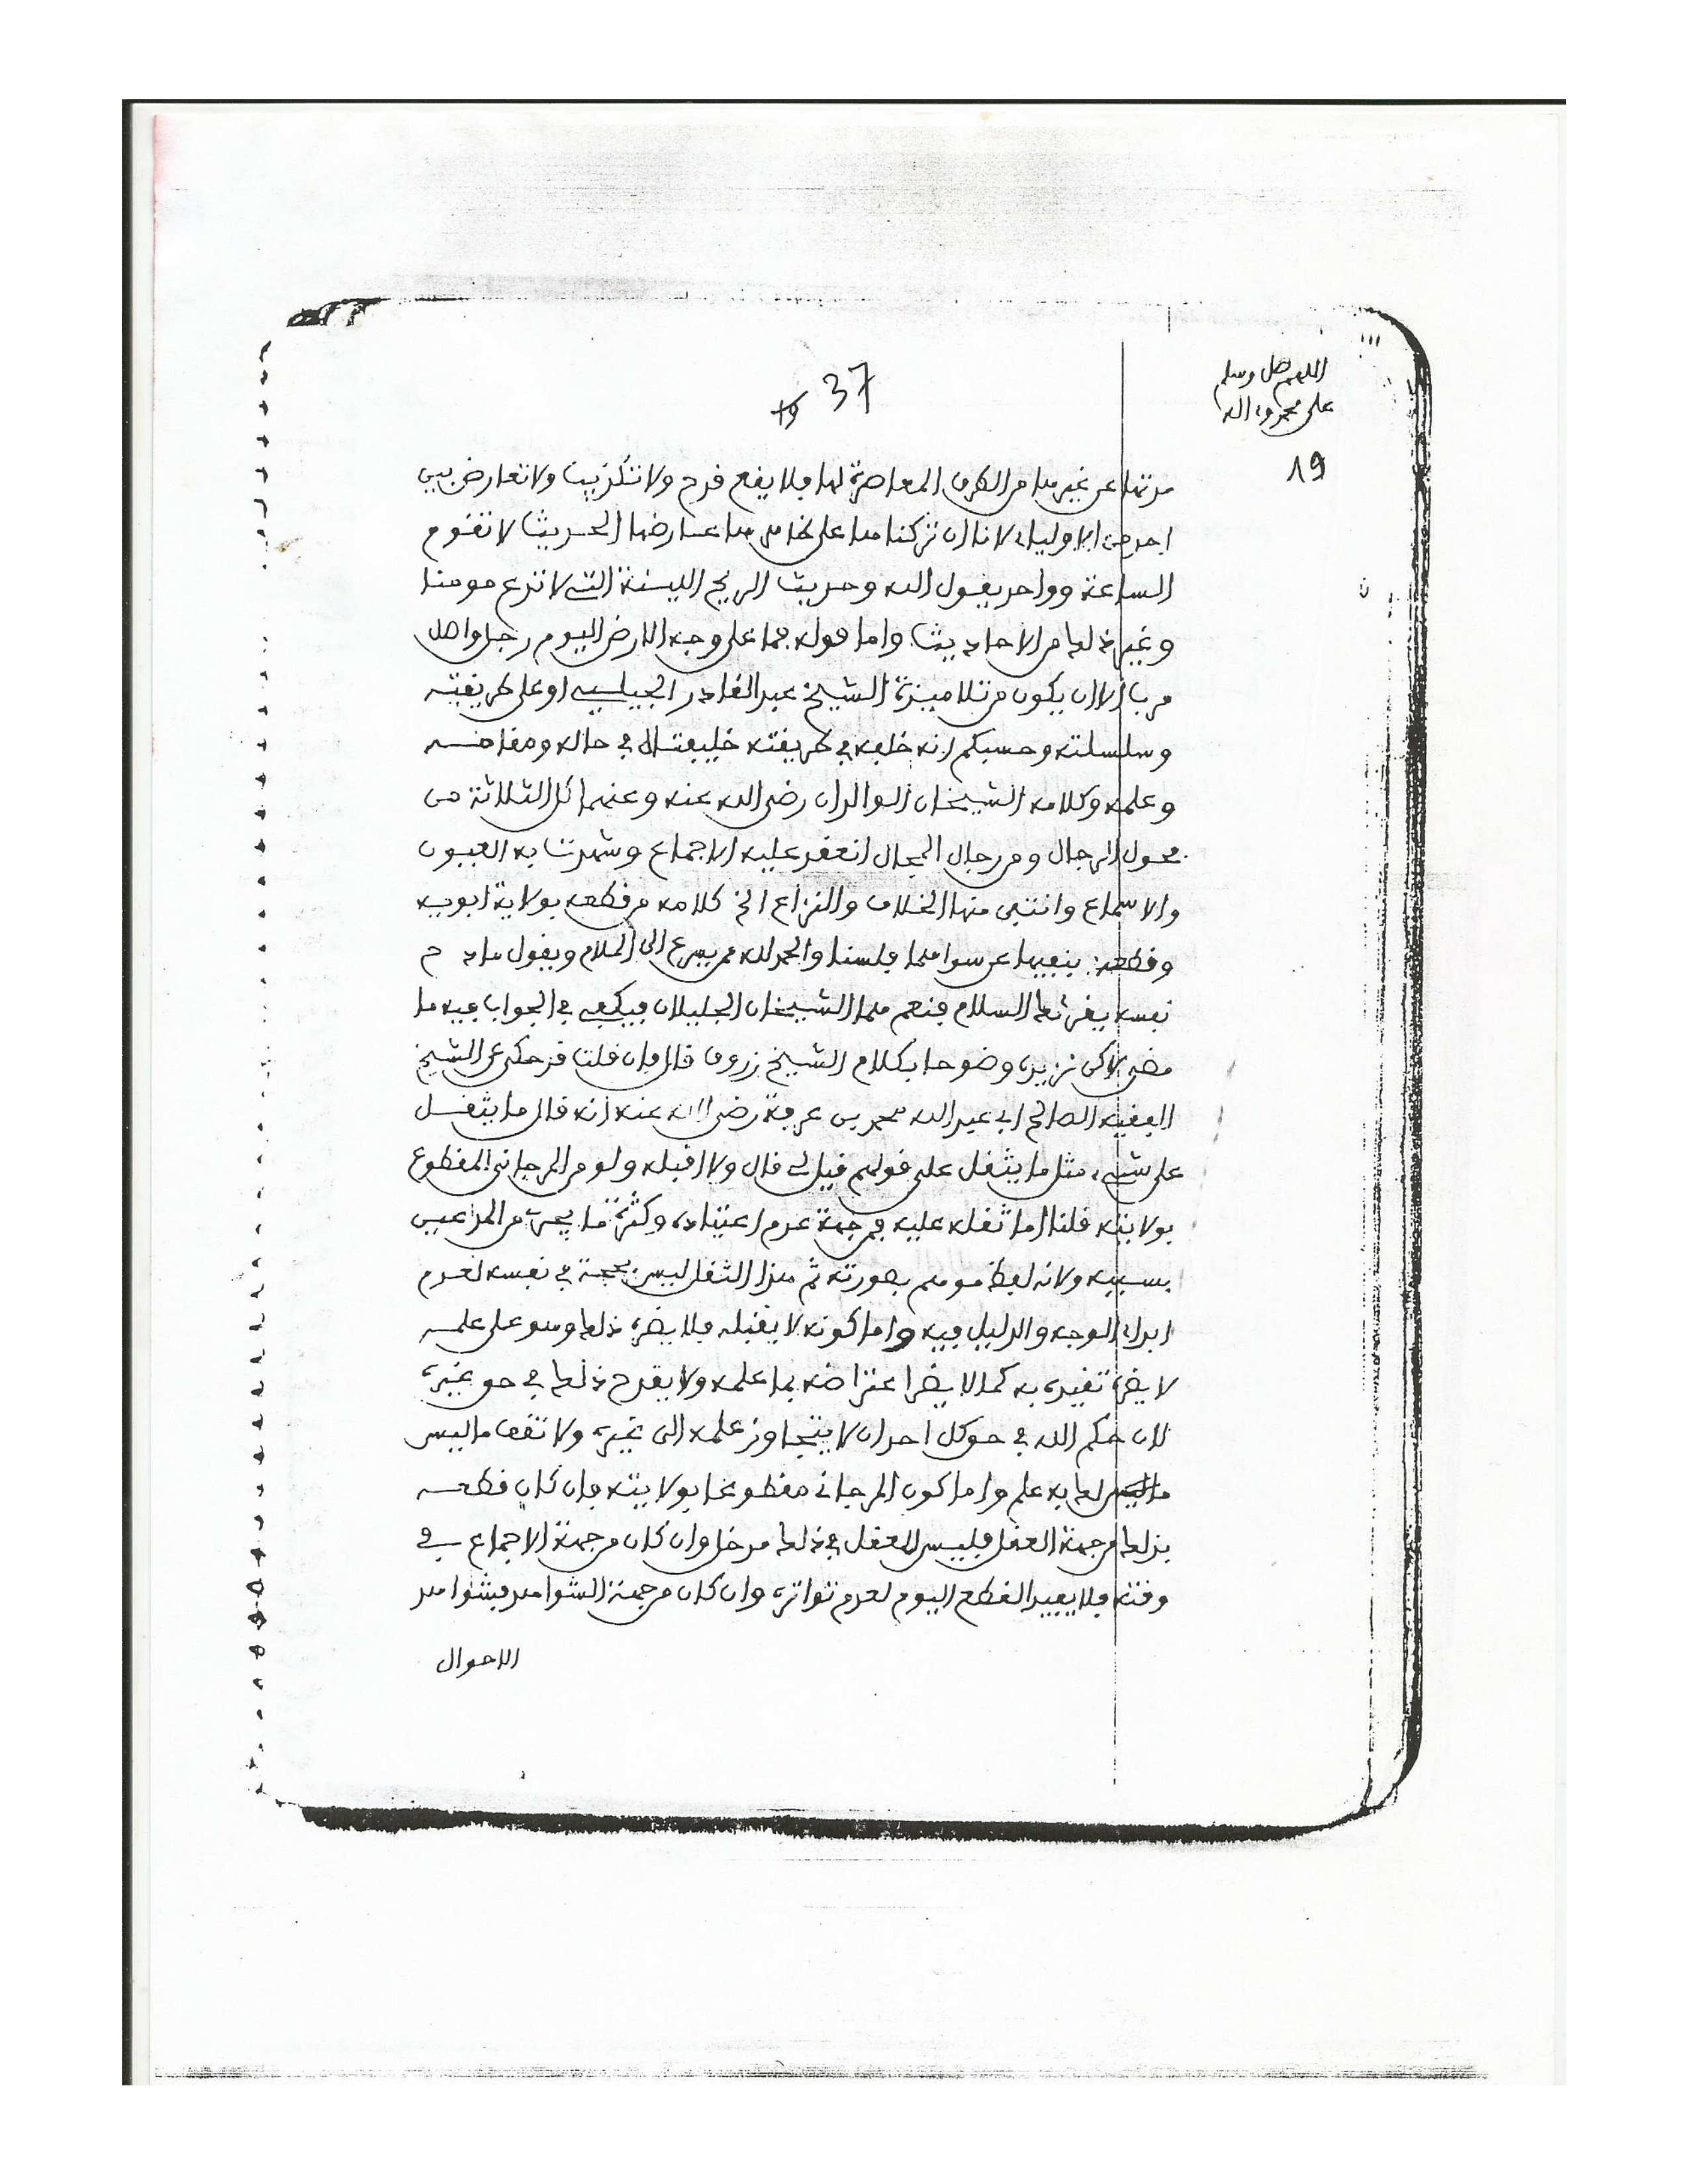 اللهم صل وسلم
على محمد وءاله
37
19
19
مدتها عن غيرها من الطرق المعاصرة لها فلا يقع قدح ولا تكذيب ولا تعارض بين
احد من الاولياء لانا ان تركناها على ظاهرها عارضها الحديث لا تقوم
الساعة وواحد يقول الله وحديث الريح اللينة التي لا تدع مومنا
وغير ذلك من الاحاديث واما قوله فما على وجه الارض اليوم رجل واصل
رباالا ان يكون من تلاميذة الشيخ عبد القادر الجيلي او على طريقته
وسلسلته وحسبكم انه خلفه في طريقته خليفتان في حاله ومقامه
وعلمه وكلامه الشيخان الوالدان رضي الله عنه وعنهما كل الثلاثة من
فحول الرجال ومن رجال المجال انعقد عليه الاجماع وشهدت به العيون
والاسماع وانتفى منها الخلاف والنزاع الخ كلامه من قطعه بولاية ابويه
وقطعه بنفيها عن سواهما فلسنا والحمد لله ممن يسرع الى الملام ويقول مادح
نفسه يقرئك السلام فنعم هما الشيخان الجليلان فيكفي في الجواب فيه ما
مضى لاكن نزيده وضوحا بكلام الشيخ زروق قال فان قلت قد حكى عن الشيخ
الفقيه الصالح ابي عبد الله محمد بن عرفة رضي الله عنه انه قال ما يثقل
على شيء مثل ما يثقل على قولهم قيل لي قال ولا اقبله ولو من المرجاني المقطوع
بولايته قلنا اما ثقله عليه فمن جهة عدم اعتياده وكثرة ما يجري من المدعين
بسببه ولانه لفظ موهم بصورته ثم هذا الثقل ليس بحجة في نفسه لعدم
ابداء الوجه والدليل فيه واما كونه لا يقبله فلا يضره ذلك وهو على علمه
لا يضره تقيده به كما لا يضر اعتراضه بما علمه ولا يقدح ذلك في حق غيره
لان حكم الله في حق كل احد ان لا يتجاوز علمه الى غيره ولا تقف ما ليس
لك به علم واما كون المرجاني مقطوعا بولايته فان كان قطعه
بذلك من جهة العقل فليس للعقل في ذلك مدخل وان كان من جهة الاجماع في
وقته فلا يفيد القطع اليوم لعدم تواتره وان كان من جهة الشواهد فشواهد
الاحوال